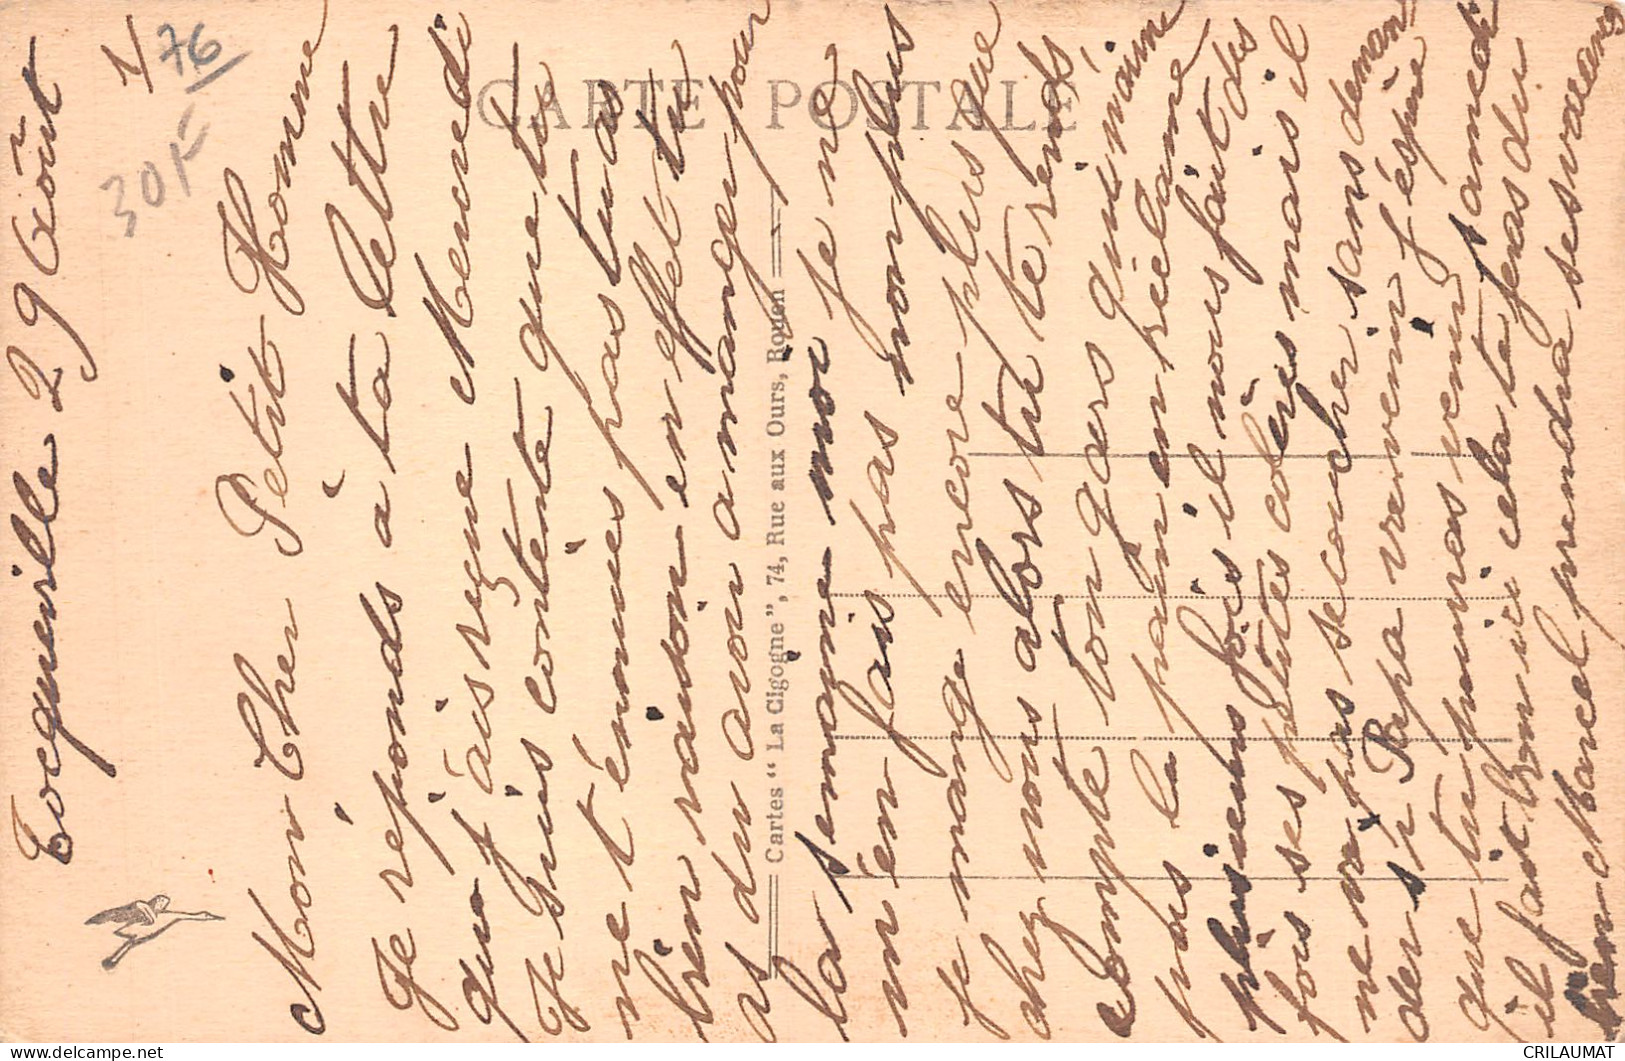 Tocqueville 29 Août
N 76
30F
Mon Cher Petit Homme
Je réponds à ta lettre
que j'ais reçue Mercredi
Je suis contente que tu
ne t'énnuies pas tu as
bien raison en effet tu
as du avoir a manger pour
la semaine moi je ne
m'en fais pas non plus
je mange encore plus que
chez nous alors tu te rends
compte ton gars qui maime
pas le pain en réclame
plusieurs fois il nous fait des
fois ses petites colères mais il
ne va pas se coucher sans deman
der si Papa va revenir j'éspère
que tu pouras venir samedi
il fait bon ici cela te feras du
bien Marcel prendra ses vacances
CARTE POSTALE
Cartes "La Cigogne", 74, Rue aux Ours, Rouen
CRILAUMAT